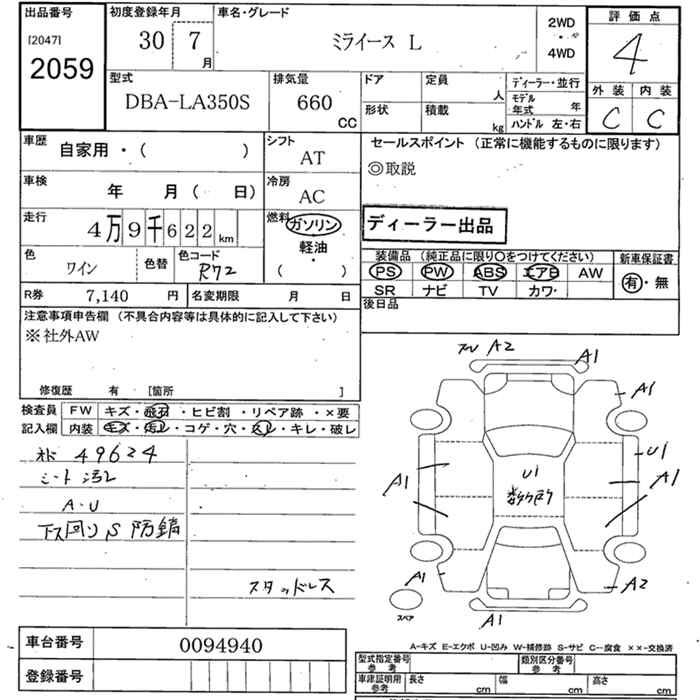 出品番号 初度登録年月 車名・グレード 2WD 評価点
[2047] 30 7 月 ミライース L ・ 4
2059 4WD
型式 排気量 ドア 定員 人 ディーラー・並行 外装 内装
DBA-LA350S 660 CC 形状 積載 kg モデル年式 年 C C
ハンドル 左・右
車歴 自家用・( ) シフト AT セールスポイント (正常に機能するものに限ります)
◎取説
車検 年 月( 日) 冷房 AC
走行 4万9千622km 燃料 ガソリン ディーラー出品
軽油・( )
色 ワイン 色替 色コード R72 装備品 (純正品に限り○をつけてください) 新車保証書
PS PW ABS エアB AW 有・無
R券 7,140 円 名変期限 月 日 SR ナビ TV カワ
後日品
注意事項申告欄 (不具合内容等は具体的に記入して下さい)
※社外AW
修復歴 有 [箇所 ]
検査員 FW キズ・飛石・ヒビ割・リペア跡・×要
記入欄 内装 キズ・汚レ・コゲ・穴・スレ・キレ・破レ
49624
シート汚レ
A・U
下回りS 防錆
スタッドレス
A2 A1
A1
A1 U1 U1
数カ所 A1
A1 A2
スペア A1
A-キズ E-エクボ U-凹み W-補修跡 S-サビ C-腐食 ××-交換済
車台番号 0094940
型式指定番号 参考 類別区分番号 参考
登録番号 車庫証明用 参考 長さ cm 幅 cm 高さ cm